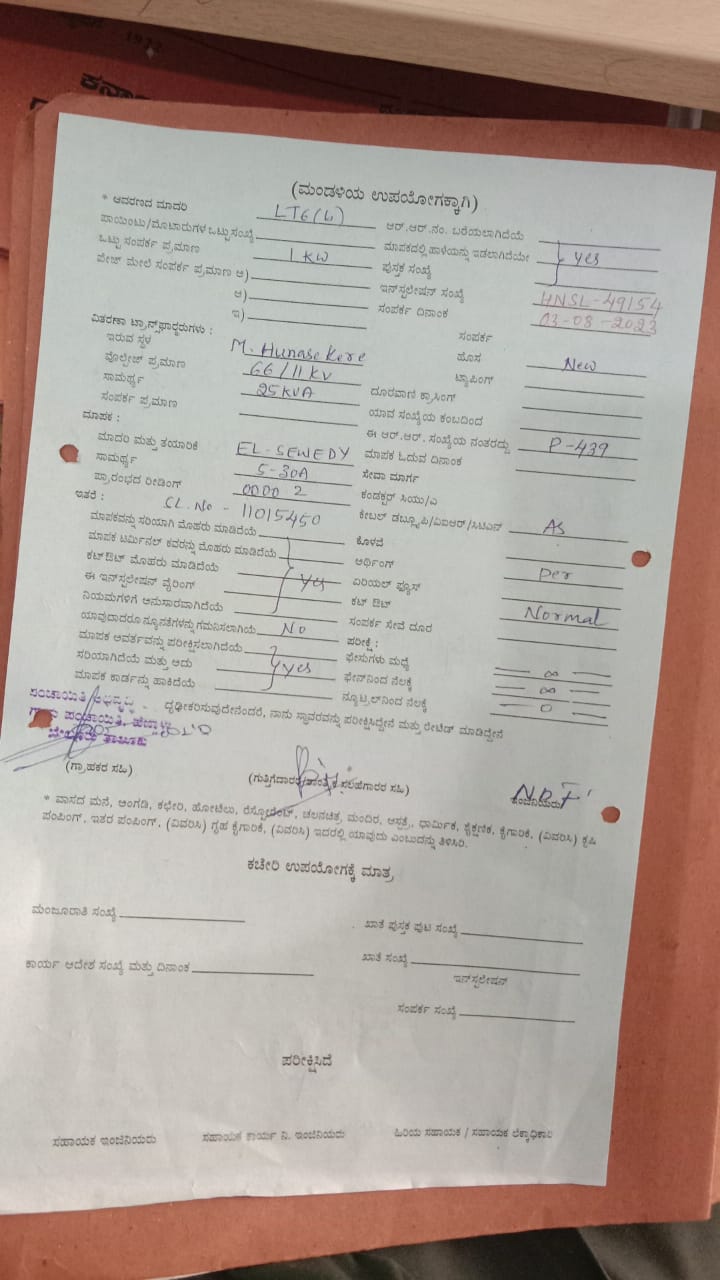 1922
ಕರ್ನಾ
(ಮಂಡಳಿಯ ಉಪಯೋಗಕ್ಕಾಗಿ)
* ಆವರಣದ ಮಾದರಿ LT6(b) ಆರ್.ಆರ್.ನಂ. ಬರೆಯಲಾಗಿದೆಯೆ
ಪಾಯಿಂಟು/ಮೊಟಾರುಗಳ ಒಟ್ಟು ಸಂಖ್ಯೆ ಮಾಪಕದಲ್ಲಿ ಹಾಳೆಯನ್ನು ಇಡಲಾಗಿದೆಯೇ yes
ಒಟ್ಟು ಸಂಪರ್ಕ ಪ್ರಮಾಣ 1 KW ಪುಸ್ತಕ ಸಂಖ್ಯೆ
ಪೇಜ್ ಮೇಲೆ ಸಂಪರ್ಕ ಪ್ರಮಾಣ ಅ) ಇನ್‌ಸ್ಟಲೇಷನ್ ಸಂಖ್ಯೆ HNSL-49154
ಆ) ಸಂಪರ್ಕ ದಿನಾಂಕ 03-08-2023
ಇ) ಸಂಪರ್ಕ
ವಿತರಣಾ ಟ್ರಾನ್ಸ್‌ಫಾರ್‍ಮರುಗಳು :
ಇರುವ ಸ್ಥಳ M. Hunasekere ಹೊಸ New
ವೊಲ್ಟೇಜ್ ಪ್ರಮಾಣ 66/11 KV ಟ್ಯಾಪಿಂಗ್
ಸಾಮರ್ಥ್ಯ 25KVA ದೂರವಾಣಿ ಕ್ರಾಸಿಂಗ್
ಸಂಪರ್ಕ ಪ್ರಮಾಣ ಯಾವ ಸಂಖ್ಯೆಯ ಕಂಬದಿಂದ
ಮಾಪಕ : ಈ ಆರ್.ಆರ್. ಸಂಖ್ಯೆಯ ನಂತರದ್ದು P-439
ಮಾದರಿ ಮತ್ತು ತಯಾರಿಕೆ EL-SEWEDY ಮಾಪಕ ಓದುವ ದಿನಾಂಕ
ಸಾಮರ್ಥ್ಯ 5-30A ಸೇವಾ ಮಾರ್ಗ
ಪ್ರಾರಂಭದ ರೀಡಿಂಗ್ 0000 2 ಕಂಡಕ್ಟರ್ ಸಿಯು/ಎ
ಇತರೆ : SL.No - 11015450 ಕೇಬಲ್ ಡಬ್ಲ್ಯೂಪಿ/ವಿಐಆರ್/ಸಿಟಿಎನ್ As
ಮಾಪಕವನ್ನು ಸರಿಯಾಗಿ ಮೊಹರು ಮಾಡಿದೆಯೆ ಕೊಳವೆ
ಮಾಪಕ ಟರ್ಮಿನಲ್ ಕವರನ್ನು ಮೊಹರು ಮಾಡಿದೆಯೆ ಅರ್ಥಿಂಗ್ per
ಕಟ್‌ಔಟ್ ಮೊಹರು ಮಾಡಿದೆಯೆ yes ಏರಿಯಲ್ ಫ್ಯೂಸ್
ಈ ಇನ್‌ಸ್ಟಲೇಷನ್ ವೈರಿಂಗ್ ಕಟ್ ಔಟ್ Normal
ನಿಯಮಗಳಿಗೆ ಅನುಸಾರವಾಗಿದೆಯೆ ಸಂಪರ್ಕ ಸೇವೆ ದೂರ
ಯಾವುದಾದರೂ ನ್ಯೂನತೆಗಳನ್ನು ಗಮನಿಸಲಾಗಿಯೆ No ಪರೀಕ್ಷೆ :
ಮಾಪಕ ಆವರ್ತವನ್ನು ಪರೀಕ್ಷಿಸಲಾಗಿದೆಯೆ ಫೇಸುಗಳು ಮಧ್ಯೆ ∞
ಸರಿಯಾಗಿದೆಯೆ ಮತ್ತು ಅದು yes ಫೇಸ್‌ನಿಂದ ನೆಲಕ್ಕೆ ∞
ಮಾಪಕ ಕಾರ್ಡನ್ನು ಹಾಕಿದೆಯೆ ನ್ಯೂಟ್ರಲ್‌ನಿಂದ ನೆಲಕ್ಕೆ 0
ದೃಢೀಕರಿಸುವುದೇನೆಂದರೆ, ನಾನು ಸ್ಥಾವರವನ್ನು ಪರೀಕ್ಷಿಸಿದ್ದೇನೆ ಮತ್ತು ರೇಟೆಡ್ ಮಾಡಿದ್ದೇನೆ
(ಗ್ರಾಹಕರ ಸಹಿ) ಇಂಜಿನಿಯರು
* ವಾಸದ ಮನೆ, ಅಂಗಡಿ, ಕಛೇರಿ, ಹೋಟೆಲು, ರೆಸ್ಟೋರೆಂಟ್, ಚಲನಚಿತ್ರ, ಮಂದಿರ, ಆಸ್ಪತ್ರೆ, ಧಾರ್ಮಿಕ, ಶೈಕ್ಷಣಿಕ, ಕೈಗಾರಿಕೆ, (ವಿವರಿಸಿ) ಕೃಷಿ
ಪಂಪಿಂಗ್, ಇತರ ಪಂಪಿಂಗ್, (ವಿವರಿಸಿ) ಗೃಹ ಕೈಗಾರಿಕೆ, (ವಿವರಿಸಿ) ಇದರಲ್ಲಿ ಯಾವುದು ಎಂಬುದನ್ನು ತಿಳಿಸಿರಿ.
ಕಚೇರಿ ಉಪಯೋಗಕ್ಕೆ ಮಾತ್ರ
ಮಂಜೂರಾತಿ ಸಂಖ್ಯೆ ಖಾತೆ ಪುಸ್ತಕ ಪುಟ ಸಂಖ್ಯೆ
ಕಾರ್ಯ ಆದೇಶ ಸಂಖ್ಯೆ ಮತ್ತು ದಿನಾಂಕ ಖಾತೆ ಸಂಖ್ಯೆ
ಇನ್‌ಸ್ಟಲೇಷನ್
ಸಂಪರ್ಕ ಸಂಖ್ಯೆ
ಪರೀಕ್ಷಿಸಿದೆ
ಸಹಾಯಕ ಇಂಜಿನಿಯರು ಸಹಾಯಕ ಕಾರ್ಯ ನಿ. ಇಂಜಿನಿಯರು ಹಿರಿಯ ಸಹಾಯಕ / ಸಹಾಯಕ ಲೆಕ್ಕಾಧಿಕಾರಿ